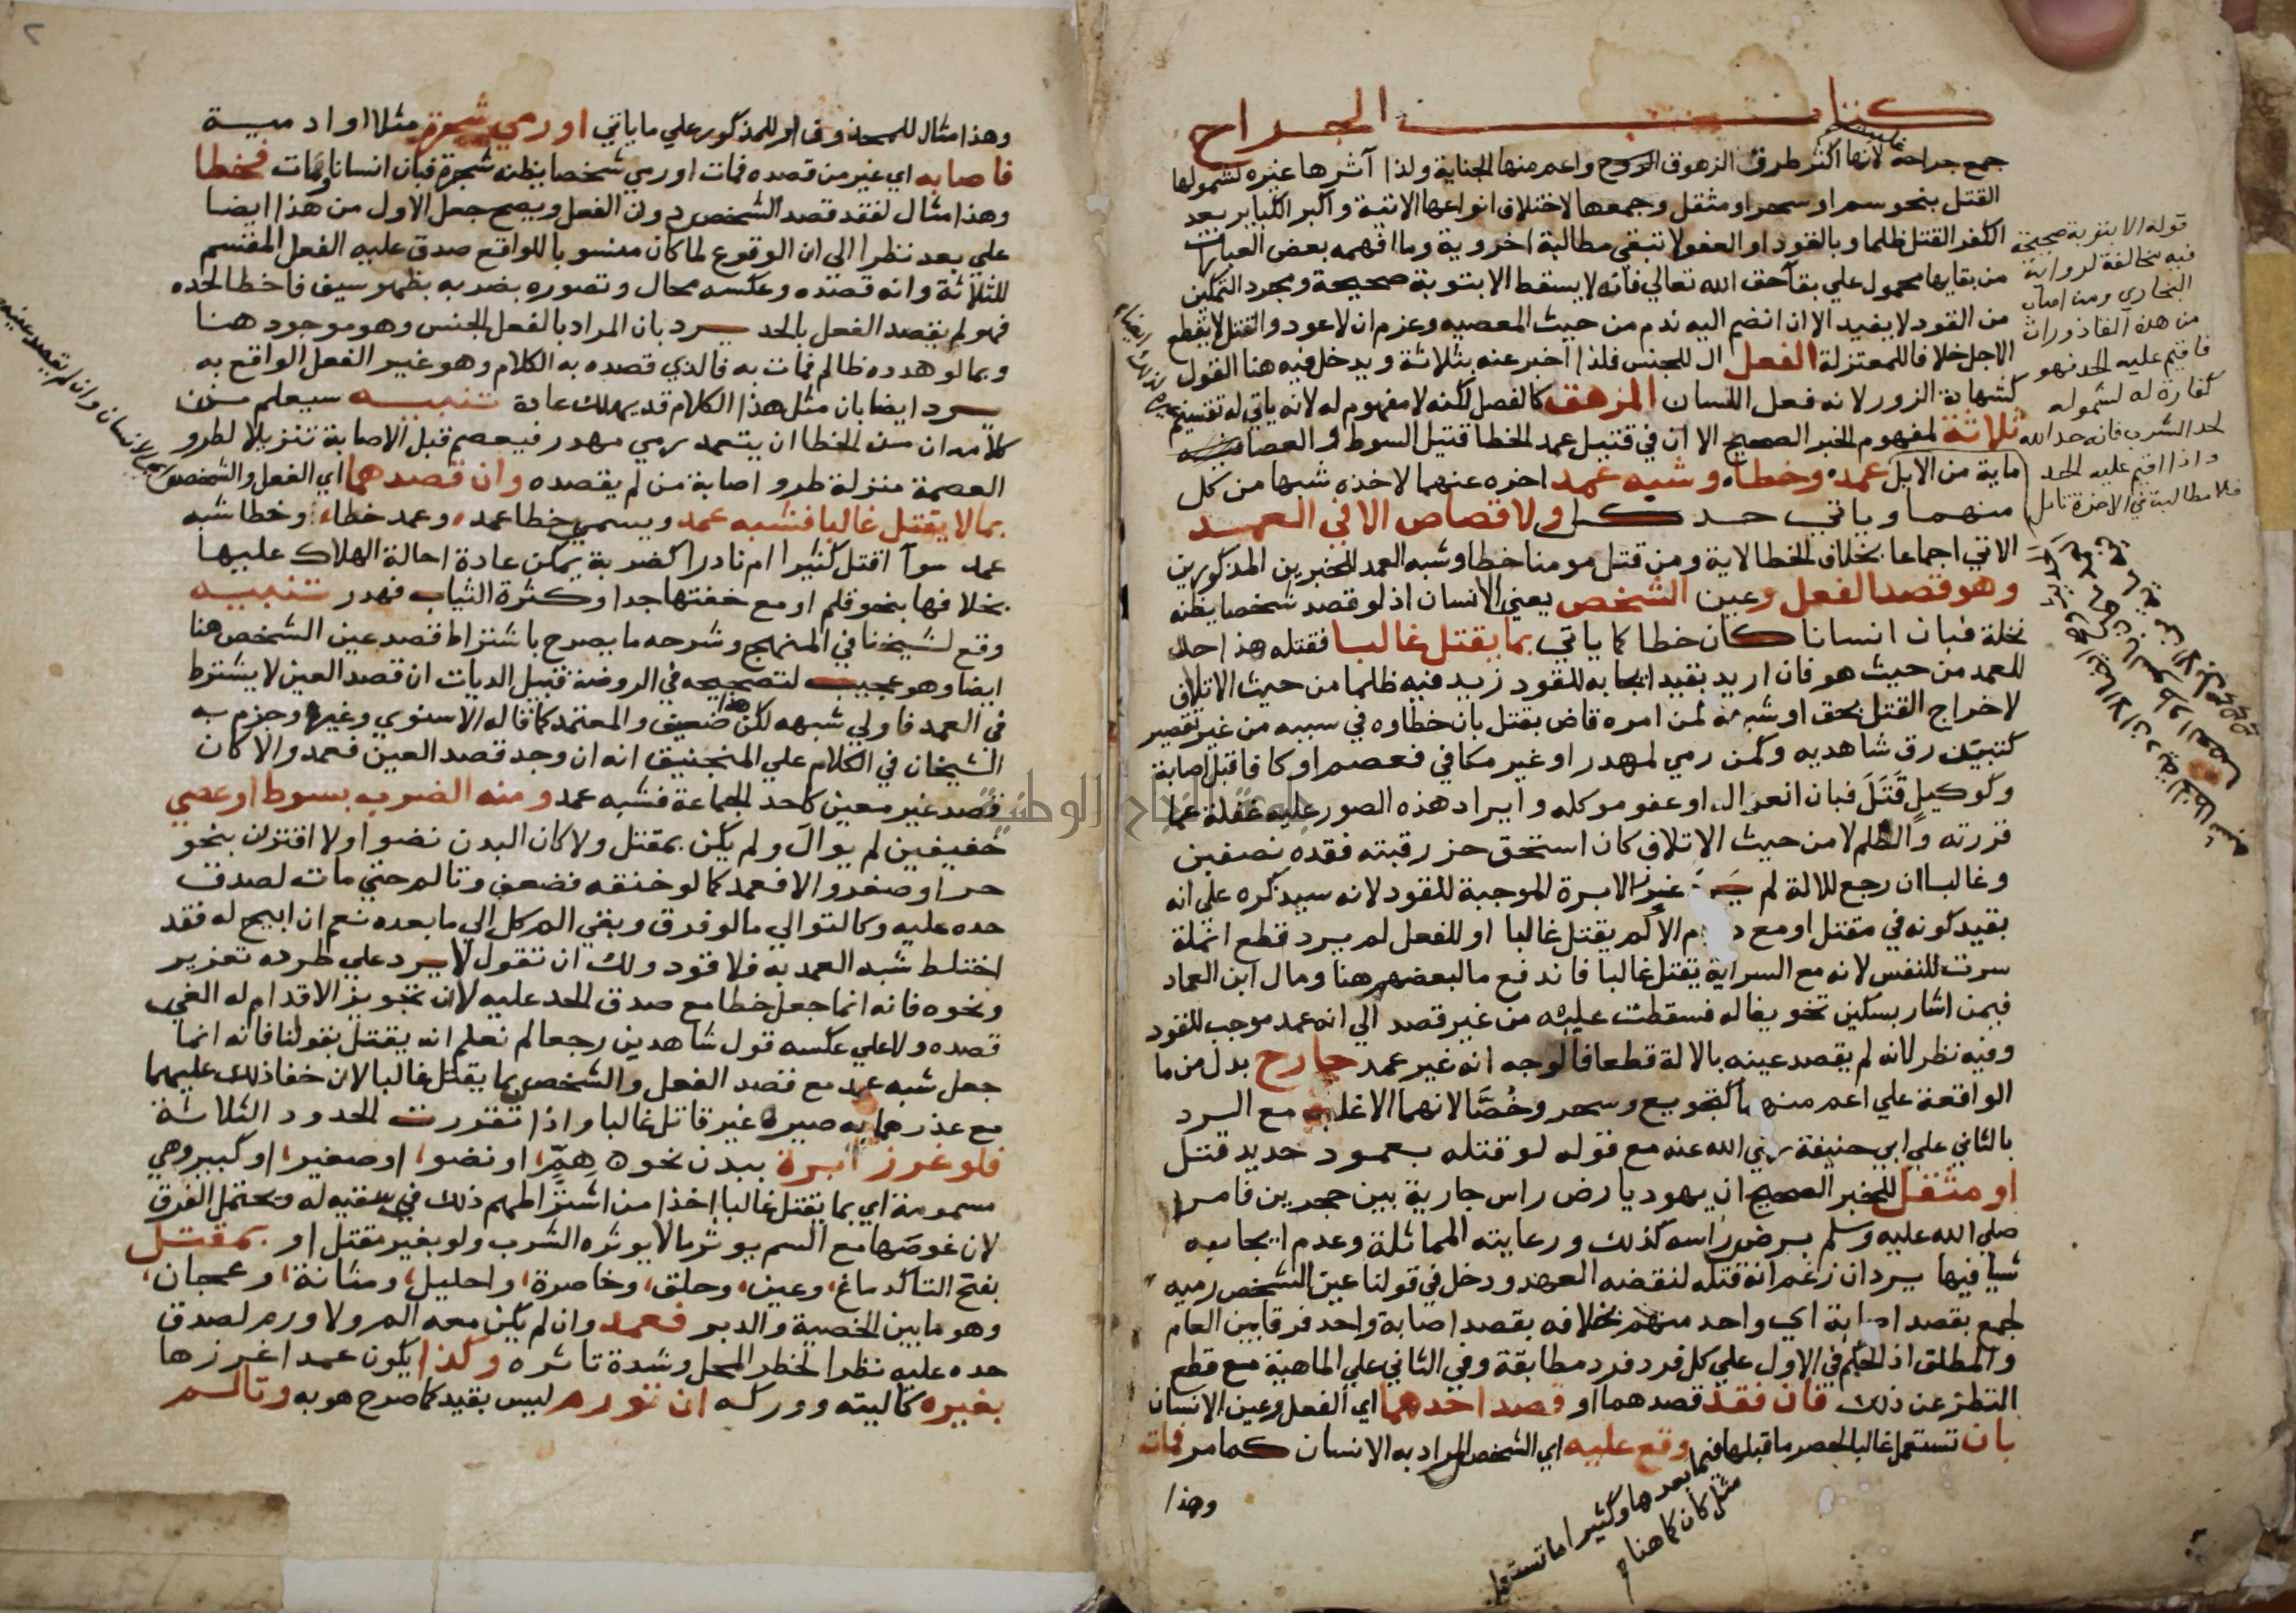 كتاب الجراح
جمع جراحة غلبت لانها اكثر طرق الزهوق الروح واعم منها الجناية ولذا آثرها غيره لشمولها
القتل بنحو سم او سحر او مثقل وجمعها لاختلاف انواعها الاتية واكبر الكباير بعد
الكفر القتل ظلما وبالقود او العفو لا تبقي مطالبة اخروية وما افهمه بعض العبارات
من بقايها محمول علي بقآ حق الله تعالي فانه لا يسقط الا بتوبة صحيحة ومجرد التمكين
من القود لا يفيد الا ان انضم اليه ندم من حيث المعصيه وعزم ان لا عود والقتل لا يقطع
الاجل خلافا للمعتزلة الفعل ال للجنس فلذا اخبر عنه بثلاثة ويدخل فيه هنا القول
كشهادة الزور لانه فعل اللسان المزهق كالفصل لكنه لا مفهوم له لانه ياتي له تقسيم
ثلاثة لمفهوم الخبر الصحيح الا ان في قتيل عمد الخطا قتيل السوط والعصا فيه
ماية من الابل عمد وخطاء وشبه عمد اخره عنهما لاخذه شبها من كل
منهما وياتي حد كل ولا قصاص الا في العمد
الاتي اجماعا بخلاف الخطا لاية ومن قتل مومنا خطا وشبه العمد للخبرين المذكورين
وهو قصد الفعل وعين الشخص يعني الانسان اذ لو قصد شخصا يظنه
نخلة فبان انسانا كان خطا كما ياتي بما يقتل غالبا فقتله هذا حد
للعمد من حيث هو فان اريد بقيد ايجابه للقود زيد فيه ظلما من حيث الاتلاف
لاخراج القتل بحق او شبهة لمن امره قاض بقتل بان خطاوه في سببه من غير تقصير
كتبين رق شاهد به وكمن رمي لمهدر او غير مكافي فعصم او كافا قبل اصابة
وكوكيل قتل فبان انعزاله او عفو موكله وايراد هذه الصور عليه غفلة عما
قررته والظلم لا من حيث الاتلاف كان استحق حز رقبته فقده نصفين
وغالبا ان رجع للالة لم يرد غرز الابرة الموجبة للقود لانه سيذكره علي انه
بقيد كونه في مقتل او مع دوام الالم يقتل غالبا او للفعل لم يرد قطع انملة
سرت للنفس لانه مع السراية يقتل غالبا فاندفع ما لبعضهم هنا ومال ابن العماد
فيمن اشار بسكين تخويفا له فسقطت عليه من غير قصد الي انه عمد موجب للقود
وفيه نظر لانه لم يقصد عينه بالالة قطعا فالوجه انه غير عمد جارح بدل من ما
الواقعة علي اعم منهما كتجويع وسحر وخصا لانهما الاغلب مع الرد
بالثاني علي ابي حنيفة رضي الله عنه مع قوله لو قتله بعمود حديد قتل
او مثقل للخبر الصحيح ان يهوديا رض راس جارية بين حجرين فامر
صلي الله عليه وسلم برض راسه كذلك ورعايته المماثلة وعدم ايجابه
شيا فيها يرد ان زعم انه قتله لنقضه العهد ودخل في قولنا عين الشخص رميه
لجمع بقصد اصابة اي واحد منهم بخلافه بقصد اصابة واحد فرقا بين العام
والمطلق اذ الحكم في الاول علي كل فرد فرد مطابقة وفي الثاني علي الماهية مع قطع
النظر عن ذلك فان فقد قصدهما او قصد احدهما اي الفعل وعين الانسان
بان تستعمل غالبا لحصر ما قبلها فيما بعدها وكثيرا ما تستعمل
مثل كأن كما هنا
وقع عليه اي الشخص المراد به الانسان كما مر فمات
وهذا
قوله الا بتوبة صحيحة
فيه مخالفة لرواية
البخاري ومن اصاب
من هذه القاذورات
فاقيم عليه الحد فهو
كفارة له لشموله
لحد الشرب فانه حد الله
واذا اقيم عليه الحد
فلا مطالبة في الاخرة تامل
٢
وهذا مثال للمحذوف او للمذكور علي ما ياتي او رمي شجرة مثلا او ادمية
فاصابه اي غير من قصده فمات او رمي شخصا يظنه شجرة فبان انسانا ومات فخطا
وهذا مثال لفقد قصد الشخص دون الفعل ويصح جعل الاول من هذا ايضا
علي بعد نظرا الي ان الوقوع لما كان منسوبا للواقع صدق عليه الفعل المقسم
للثلاثة وانه قصده وعكسه محال وتصوره بضربه بظهر سيف فاخطا لحده
فهو لم يقصد الفعل بالحد يرد بان المراد بالفعل الجنس وهو موجود هنا
وبما لو هدده ظالم فمات به فالذي قصده به الكلام وهو غير الفعل الواقع به
يرد ايضا بان مثل هذا الكلام قد يهلك عادة تنبيه سيعلم من
كلامه ان من الخطا ان يتعمد رمي مهدر فيعصم قبل الاصابة تنزيلا لطرو
العصمة منزلة طرو اصابة من لم يقصده وان قصدهما اي الفعل والشخص
بما لا يقتل غالبا فشبه عمد ويسمي خطا عمد وعمد خطاء وخطا شبه
عمد سوآ اقتل كثيرا ام نادرا كضربة يمكن عادة احالة الهلاك عليها
بخلافها بنحو قلم او مع خفتها جدا وكثرة الثياب فهدر تنبيه
وقع لشيخنا في المنهج وشرحه ما يصرح باشتراط قصد عين الشخص هنا
ايضا وهو عجيب لتصحيحه في الروضة قبيل الديات ان قصد العين لا يشترط
في العمد فاولي شبهه لكن هذا ضعيف والمعتمد كما قاله الاسنوي وغيره وجزم به
الشيخان في الكلام علي المنجنيق انه ان وجد قصد العين فعمد والا كان
قصد غير معين كاحد الجماعة فشبه عمد ومنه الضرب بسوط او عصي
خفيفين لم يوال ولم يكن بمقتل ولا كان البدن نضوا ولا اقترن بنحو
حر او صغر والا فعمد كما لو خنقه فضعف وتالم حتي مات لصدق
حده عليه وكالتوالي ما لو فرق وبقي الم كل الي ما بعده نعم ان ابيح له فقد
اختلط شبه العمد به فلا قود ولك ان تقول لا يرد علي طرده تعزير
ونحوه فانه انما جعل خطا مع صدق الحد عليه لان تجويز الاقدام له الغي
قصده ولا علي عكسه قول شاهدين رجعا لم نعلم انه يقتل بقولنا فانه انما
جعل شبه عمد مع قصد الفعل والشخص بما يقتل غالبا لان خفا ذلك عليهما
مع عذرهما به صيره غير قاتل غالبا واذا تقررت الحدود الثلاثة
فلو غرز ابرة ببدن نحو هم او نضو او صغير او كبير وهي
مسمومة اي بما يقتل غالبا اخذا من اشتراطهم ذلك في سقيه له ويحتمل الفرق
لان غوصها مع السم يوثر ما لا يوثره الشرب ولو بغير مقتل او بمقتل
بفتح التا كدماغ وعين وحلق وخاصرة واحليل ومثانة وعجان
وهو ما بين الخصية والدبر فعمد وان لم يكن معه الم ولا ورم لصدق
حده عليه نظرا لخطر المحل وشدة تاثره وكذا يكون عمدا غرزها
بغيره كاليته ووركه ان تورم ليس بقيد كما صرح هو به وتالم